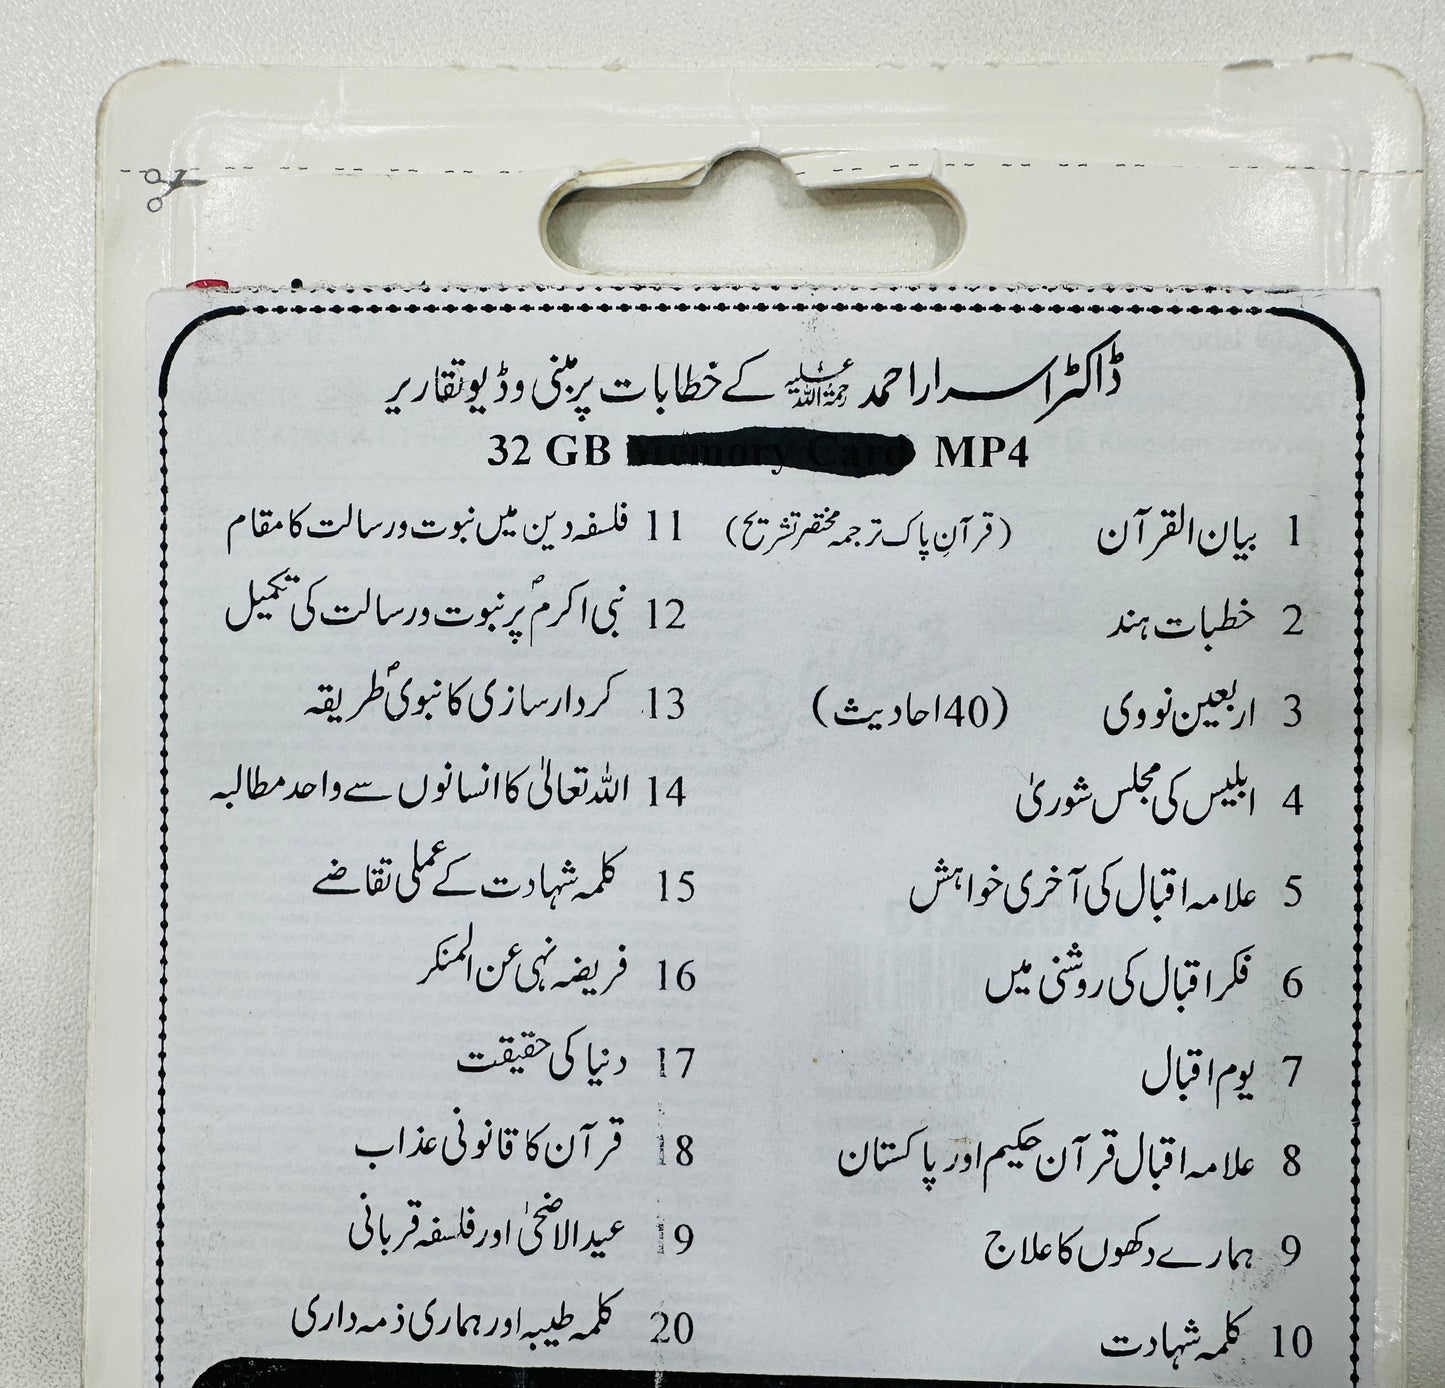 ڈاکٹر اسرار احمد رحمۃ اللہ علیہ کے خطابات پر مبنی وڈیو تقاریر
32 GB Memory Card MP4
1 بیان القرآن (قرآنِ پاک ترجمہ مختصر تشریح)
2 خطبات ہند
3 اربعین نووی (40 احادیث)
4 ابلیس کی مجلس شوریٰ
5 علامہ اقبال کی آخری خواہش
6 فکر اقبال کی روشنی میں
7 یوم اقبال
8 علامہ اقبال قرآن حکیم اور پاکستان
9 ہمارے دکھوں کا علاج
10 کلمہ شہادت
11 فلسفہ دین میں نبوت و رسالت کا مقام
12 نبی اکرمؐ پر نبوت و رسالت کی تکمیل
13 کردار سازی کا نبویؐ طریقہ
14 اللہ تعالیٰ کا انسانوں سے واحد مطالبہ
15 کلمہ شہادت کے عملی تقاضے
16 فریضہ نہی عن المنکر
17 دنیا کی حقیقت
18 قرآن کا قانونی عذاب
19 عید الاضحیٰ اور فلسفہ قربانی
20 کلمہ طیبہ اور ہماری ذمہ داری